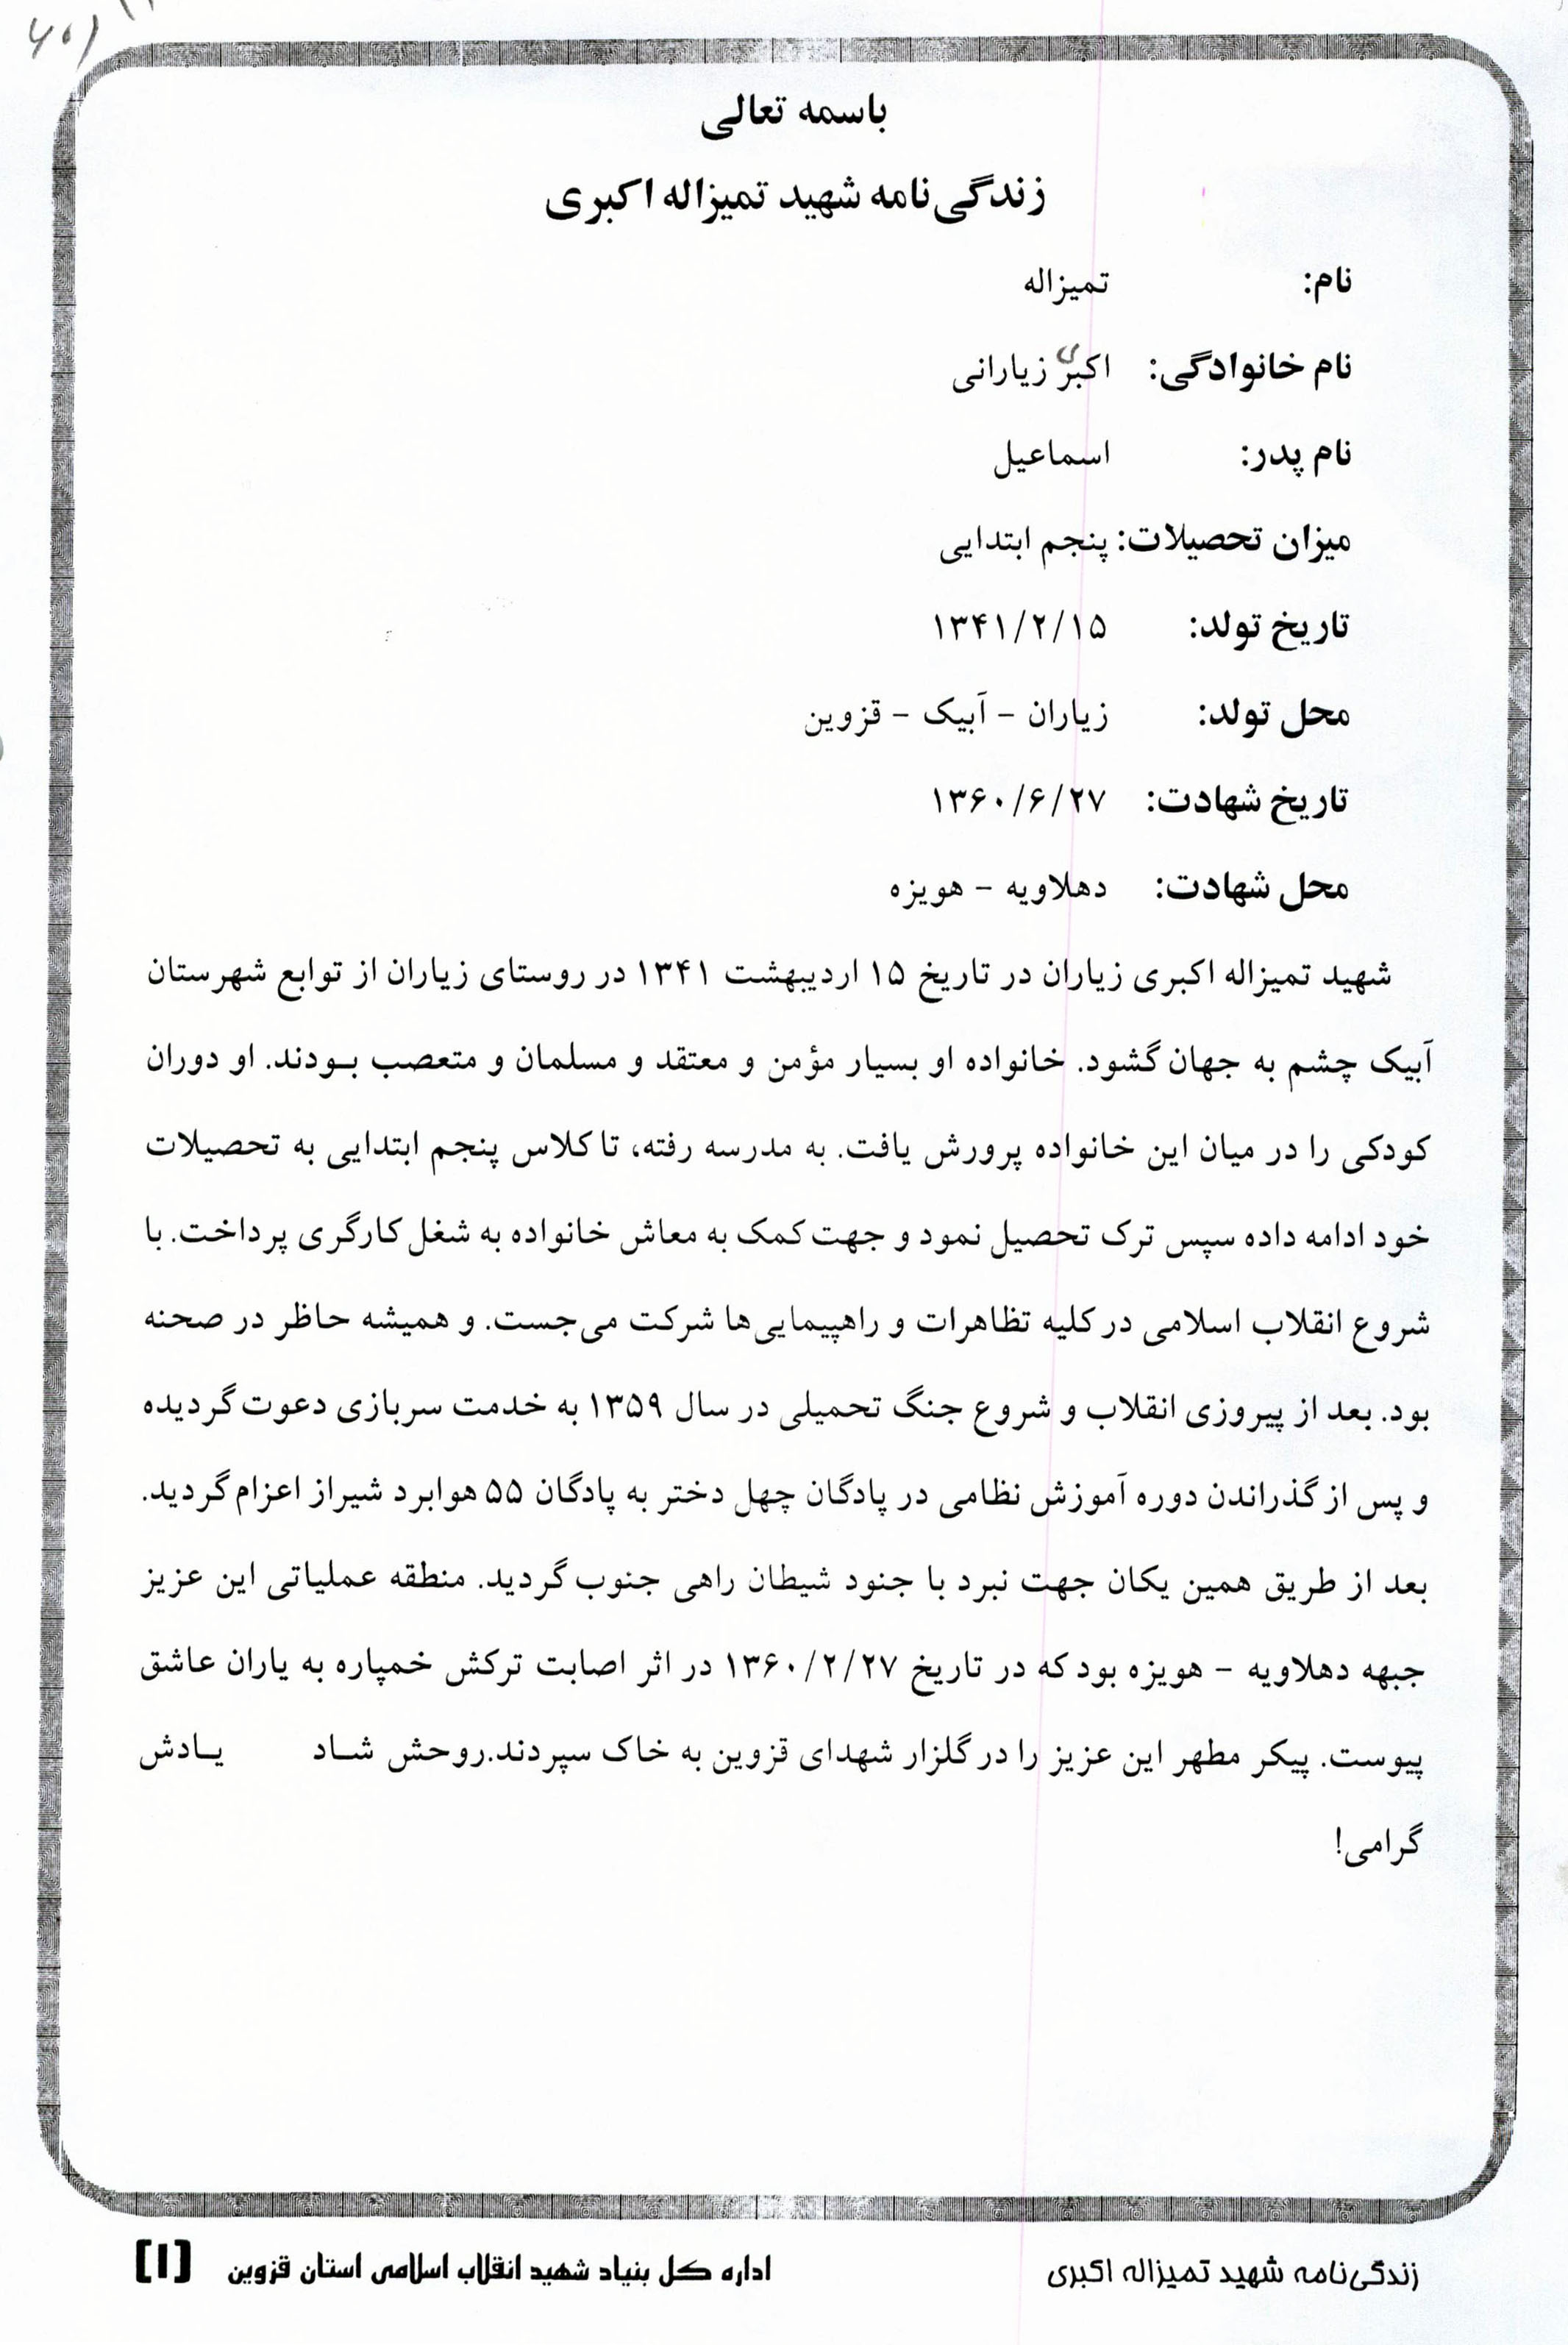 باسمه تعالی
زندگی‌نامه شهید تمیزاله اکبری
نام: تمیزاله
نام خانوادگی: اکبری زیارانی
نام پدر: اسماعیل
میزان تحصیلات: پنجم ابتدایی
تاریخ تولد: ۱۳۴۱/۲/۱۵
محل تولد: زیاران - آبیک - قزوین
تاریخ شهادت: ۱۳۶۰/۶/۲۷
محل شهادت: دهلاویه - هویزه
شهید تمیزاله اکبری زیاران در تاریخ ۱۵ اردیبهشت ۱۳۴۱ در روستای زیاران از توابع شهرستان
آبیک چشم به جهان گشود. خانواده او بسیار مؤمن و معتقد و مسلمان و متعصب بـودند. او دوران
کودکی را در میان این خانواده پرورش یافت. به مدرسه رفته، تا کلاس پنجم ابتدایی به تحصیلات
خود ادامه داده سپس ترک تحصیل نمود و جهت کمک به معاش خانواده به شغل کارگری پرداخت. با
شروع انقلاب اسلامی در کلیه تظاهرات و راهپیمایی‌ها شرکت می‌جست. و همیشه حاظر در صحنه
بود. بعد از پیروزی انقلاب و شروع جنگ تحمیلی در سال ۱۳۵۹ به خدمت سربازی دعوت گردیده
و پس از گذراندن دوره آموزش نظامی در پادگان چهل دختر به پادگان ۵۵ هوابرد شیراز اعزام گردید.
بعد از طریق همین یکان جهت نبرد با جنود شیطان راهی جنوب گردید. منطقه عملیاتی این عزیز
جبهه دهلاویه - هویزه بود که در تاریخ ۱۳۶۰/۲/۲۷ در اثر اصابت ترکش خمپاره به یاران عاشق
پیوست. پیکر مطهر این عزیز را در گلزار شهدای قزوین به خاک سپردند.روحش شـاد یـادش
گرامی!
زندگی‌نامه شهید تمیزاله اکبری اداره کل بنیاد شهید انقلاب اسلامی استان قزوین [۱]